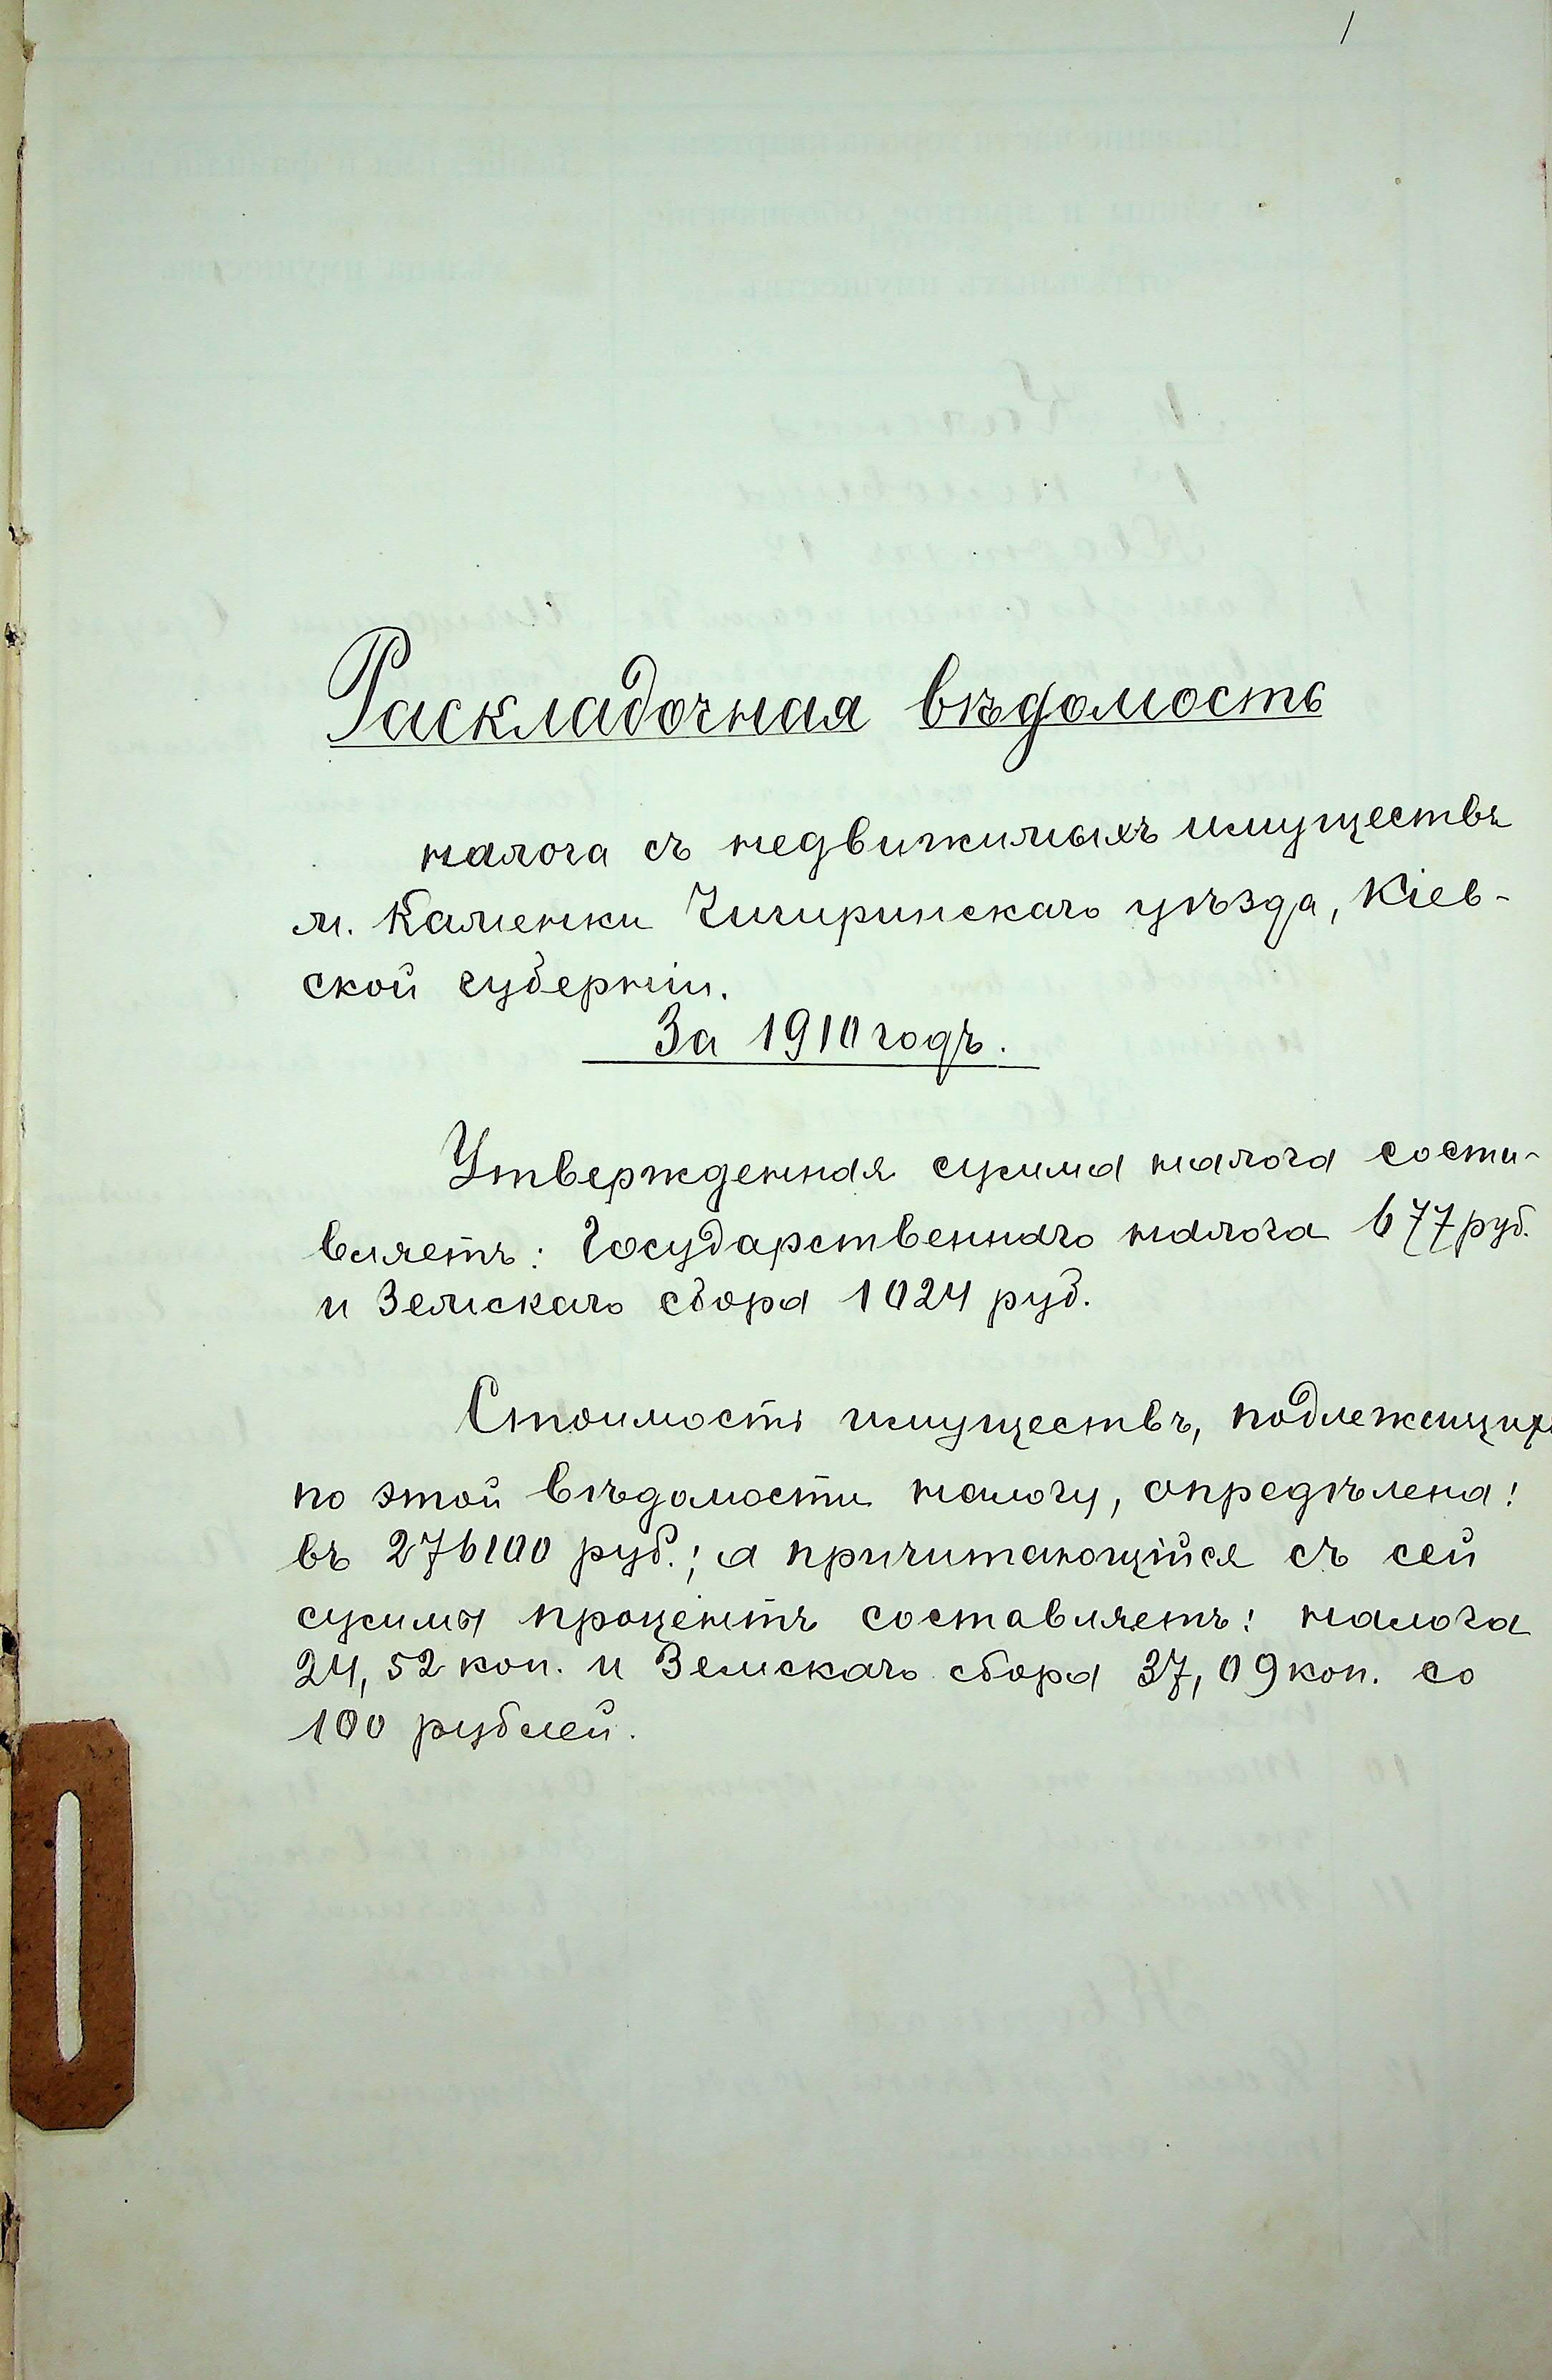 1
Раскладочная вѣдомость
налога съ недвижимыхъ имуществъ
м. Каменки Чигиринскаго уѣзда, Кіев-
ской губерніи.
За 1910 годъ.
Утвержденная сумма налога соста-
вляетъ: Государственнаго налога 677 руб.
и Земскаго сбора 1024 руб.
Стоимость имуществъ, подлежащихъ
по этой вѣдомости налогу, опредѣлена:
въ 276100 руб.; а причитающійся съ сей
суммы процентъ составляетъ: налога
24,52 коп. и Земскаго сбора 37,09 коп. со
100 рублей.